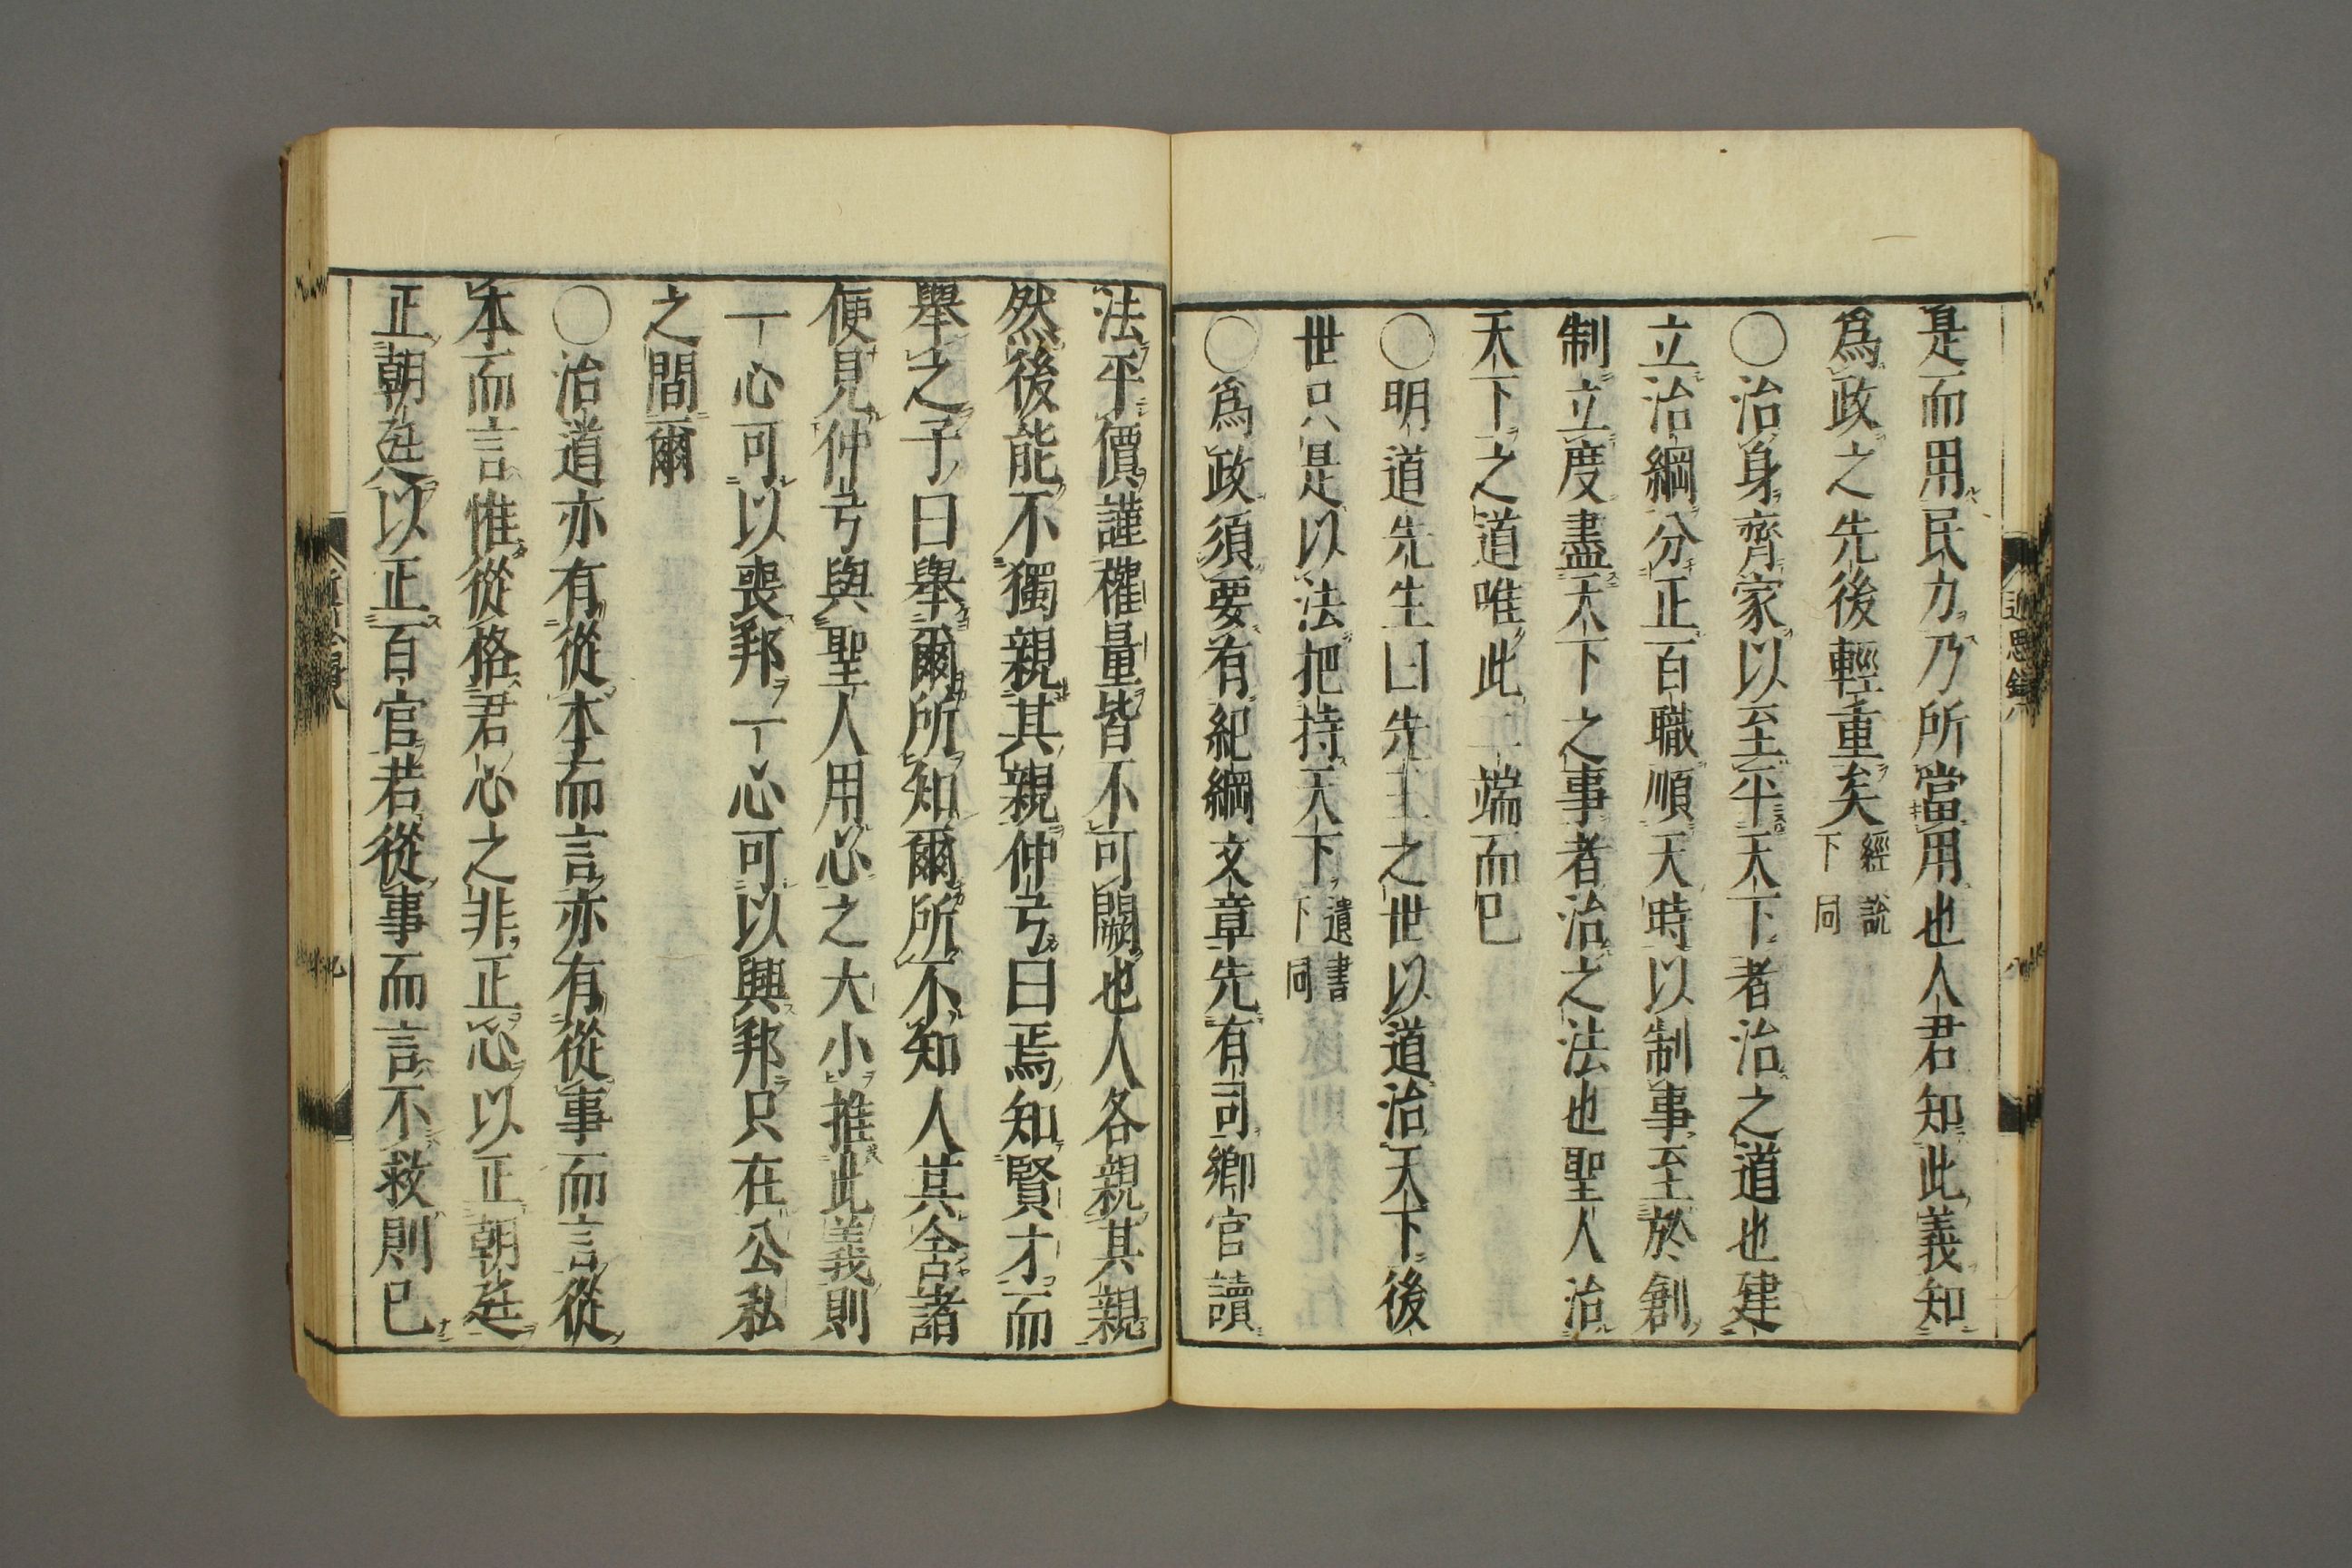 是而用民力乃所當用也人君知此義知
爲政之先後輕重矣經說下同
〇治身齊家以至平天下者治之道也建
立治綱分正百職順天時以制事至於創
制立度盡天下之事者治之法也聖人治
天下之道唯此二端而已
〇明道先生曰先王之世以道治天下後
世只是以法把持天下遺書下同
〇爲政須要有紀綱文章先有司鄉官讀
法平價謹權量皆不可闕也人各親其親
然後能不獨親其親仲弓曰焉知賢才而
舉之子曰舉爾所知爾所不知人其舍諸
便見仲弓與聖人用心之大小推此義則
一心可以喪邦一心可以興邦只在公私
之間爾
〇治道亦有從本而言亦有從事而言從
本而言惟從格君心之非正心以正朝廷
正朝廷以正百官若從事而言不救則已
近思錄
八
九